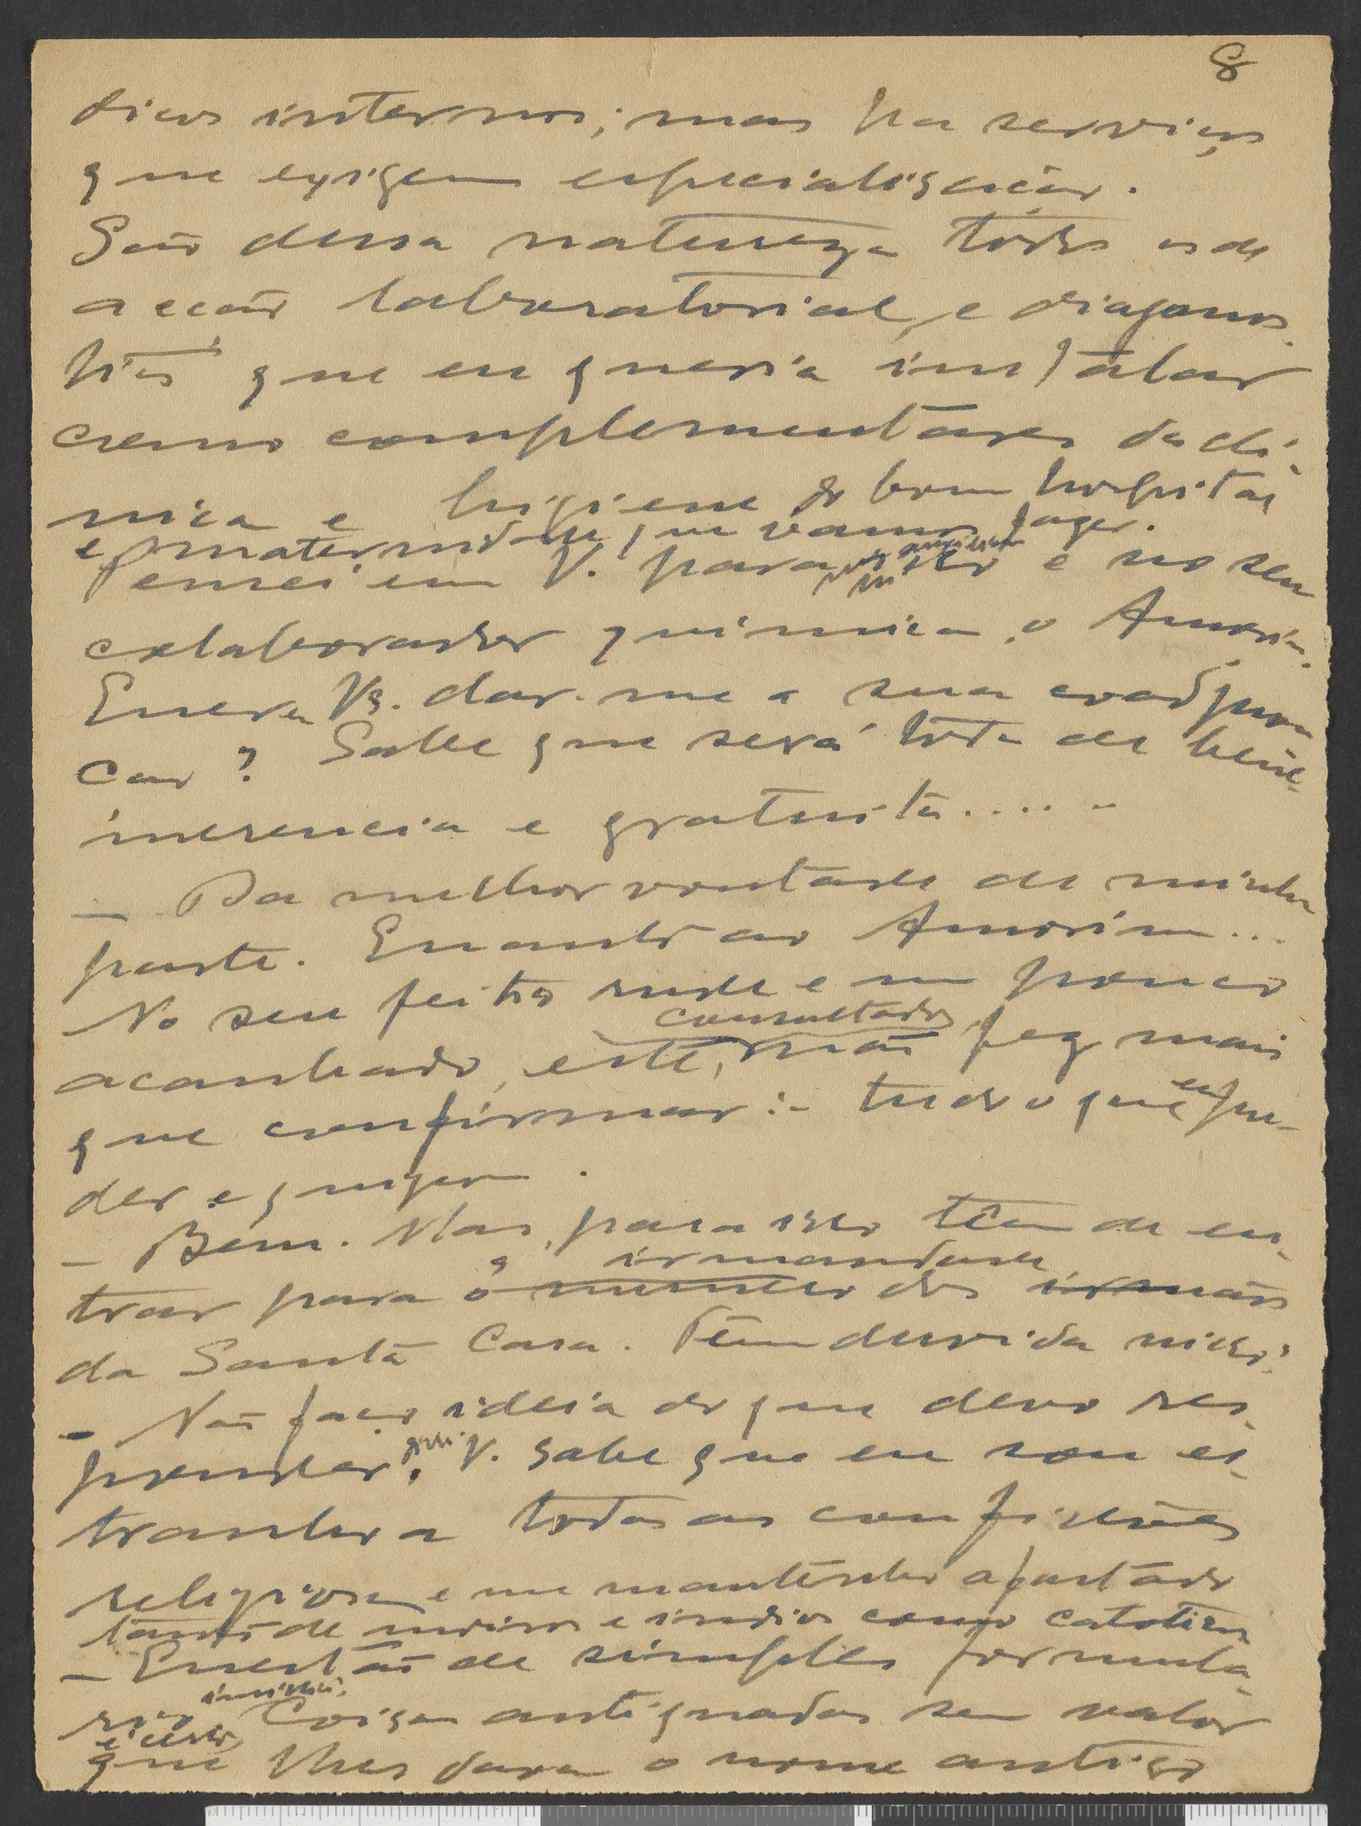 8
dicos internos; mas ha serviços
que exigem especialisação.
São dessa natureza todos os de
acção laboratorial, e diagnos-
ticos que eu queria instalar
como complementares da cli-
nica e higiene do bom hospital
e maternidade que vamos fazer.
Pensei em V. para isso e no seu
colaborador quimico, o Amorim.
Quer V. dar-me a sua coadjuva
ção? Sabe que será toda de bene-
merencia e gratuita......
— Da melhor vontade de minha
parte. Quanto ao Amorim...
No seu feitio rude e um pouco
consultado,
acanhado, este, não fez mais
que confirmar:- tudo o que eu pu-
der e quizer.
— Bem. Mas, para isso têm de en-
a irmandade
trar para o numero dos irmãos
da Santa Casa. Têm duvida nisso?
— Não faço ideia do que devo res-
ponder. V. sabe que eu sou es-
tranho a todas as confissões
religiosas e me mantenho afastado
tanto de moiros e indios como catolicos
— Questão de simples formula-
rio, Coisas antiquadas sem valor
que lhes dava o nome antigo